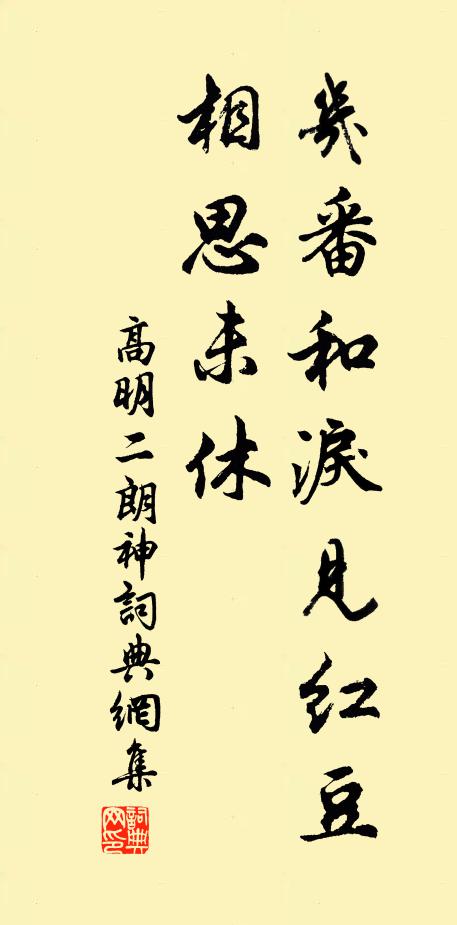 幾番和淚見紅豆
相思未休
高明二朗神詞典網集
詞典网印